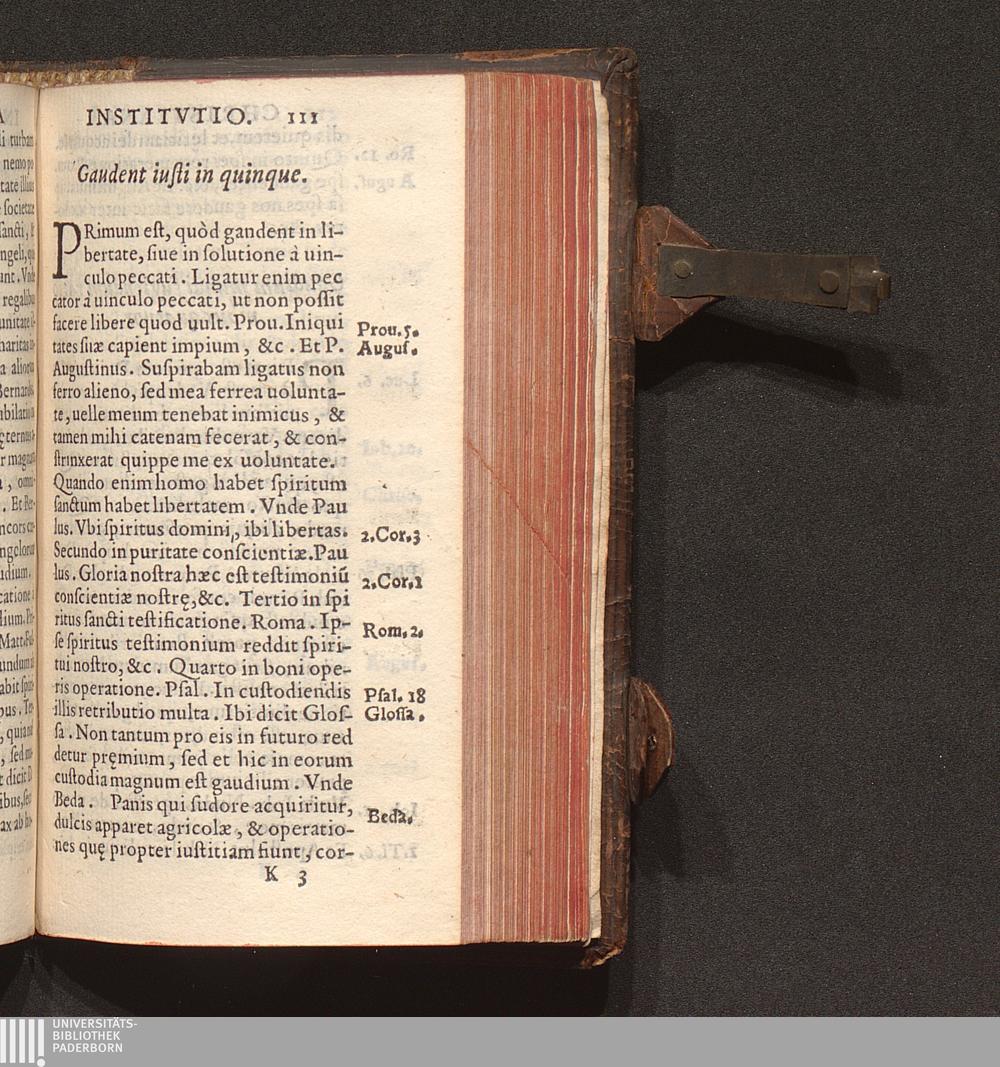 INSTITVTIO. 111
Gaudent iuſti in quinque.
PRimum eſt, quòd gandent in li-
bertate, ſiue in ſolutione à uin-
culo peccati. Ligatur enim pec
cator à uinculo peccati, ut non poſſit
facere libere quod uult. Prou. Iniqui
tates ſuæ capient impium, &c. Et P.
Auguſtinus. Suſpirabam ligatus non
ferro alieno, ſed mea ferrea uolunta-
te, uelle meum tenebat inimicus, &
tamen mihi catenam fecerat, & con-
ſtrinxerat quippe me ex uoluntate.
Quando enim homo habet ſpiritum
ſanctum habet libertatem. Vnde Pau
lus. Vbi ſpiritus domini, ibi libertas.
Secundo in puritate conſcientiæ. Pau
lus. Gloria noſtra hæc eſt teſtimoniū
conſcientiæ noſtrę, &c. Tertio in ſpi
ritus ſancti teſtificatione. Roma. Ip-
ſe ſpiritus teſtimonium reddit ſpiri-
tui noſtro, &c. Quarto in boni ope-
ris operatione. Pſal. In cuſtodiendis
illis retributio multa. Ibi dicit Gloſ-
ſa. Non tantum pro eis in futuro red
detur pręmium, ſed et hic in eorum
cuſtodia magnum eſt gaudium. Vnde
Beda. Panis qui ſudore acquiritur,
dulcis apparet agricolæ, & operatio-
nes quę propter iuſtitiam fiunt, cor-
K 3
Prou. 5.
Auguſ.
2. Cor. 3
2. Cor. 1
Rom. 2.
Pſal. 18
Gloſſa.
Beda.
UNIVERSITÄTS-
BIBLIOTHEK
PADERBORN